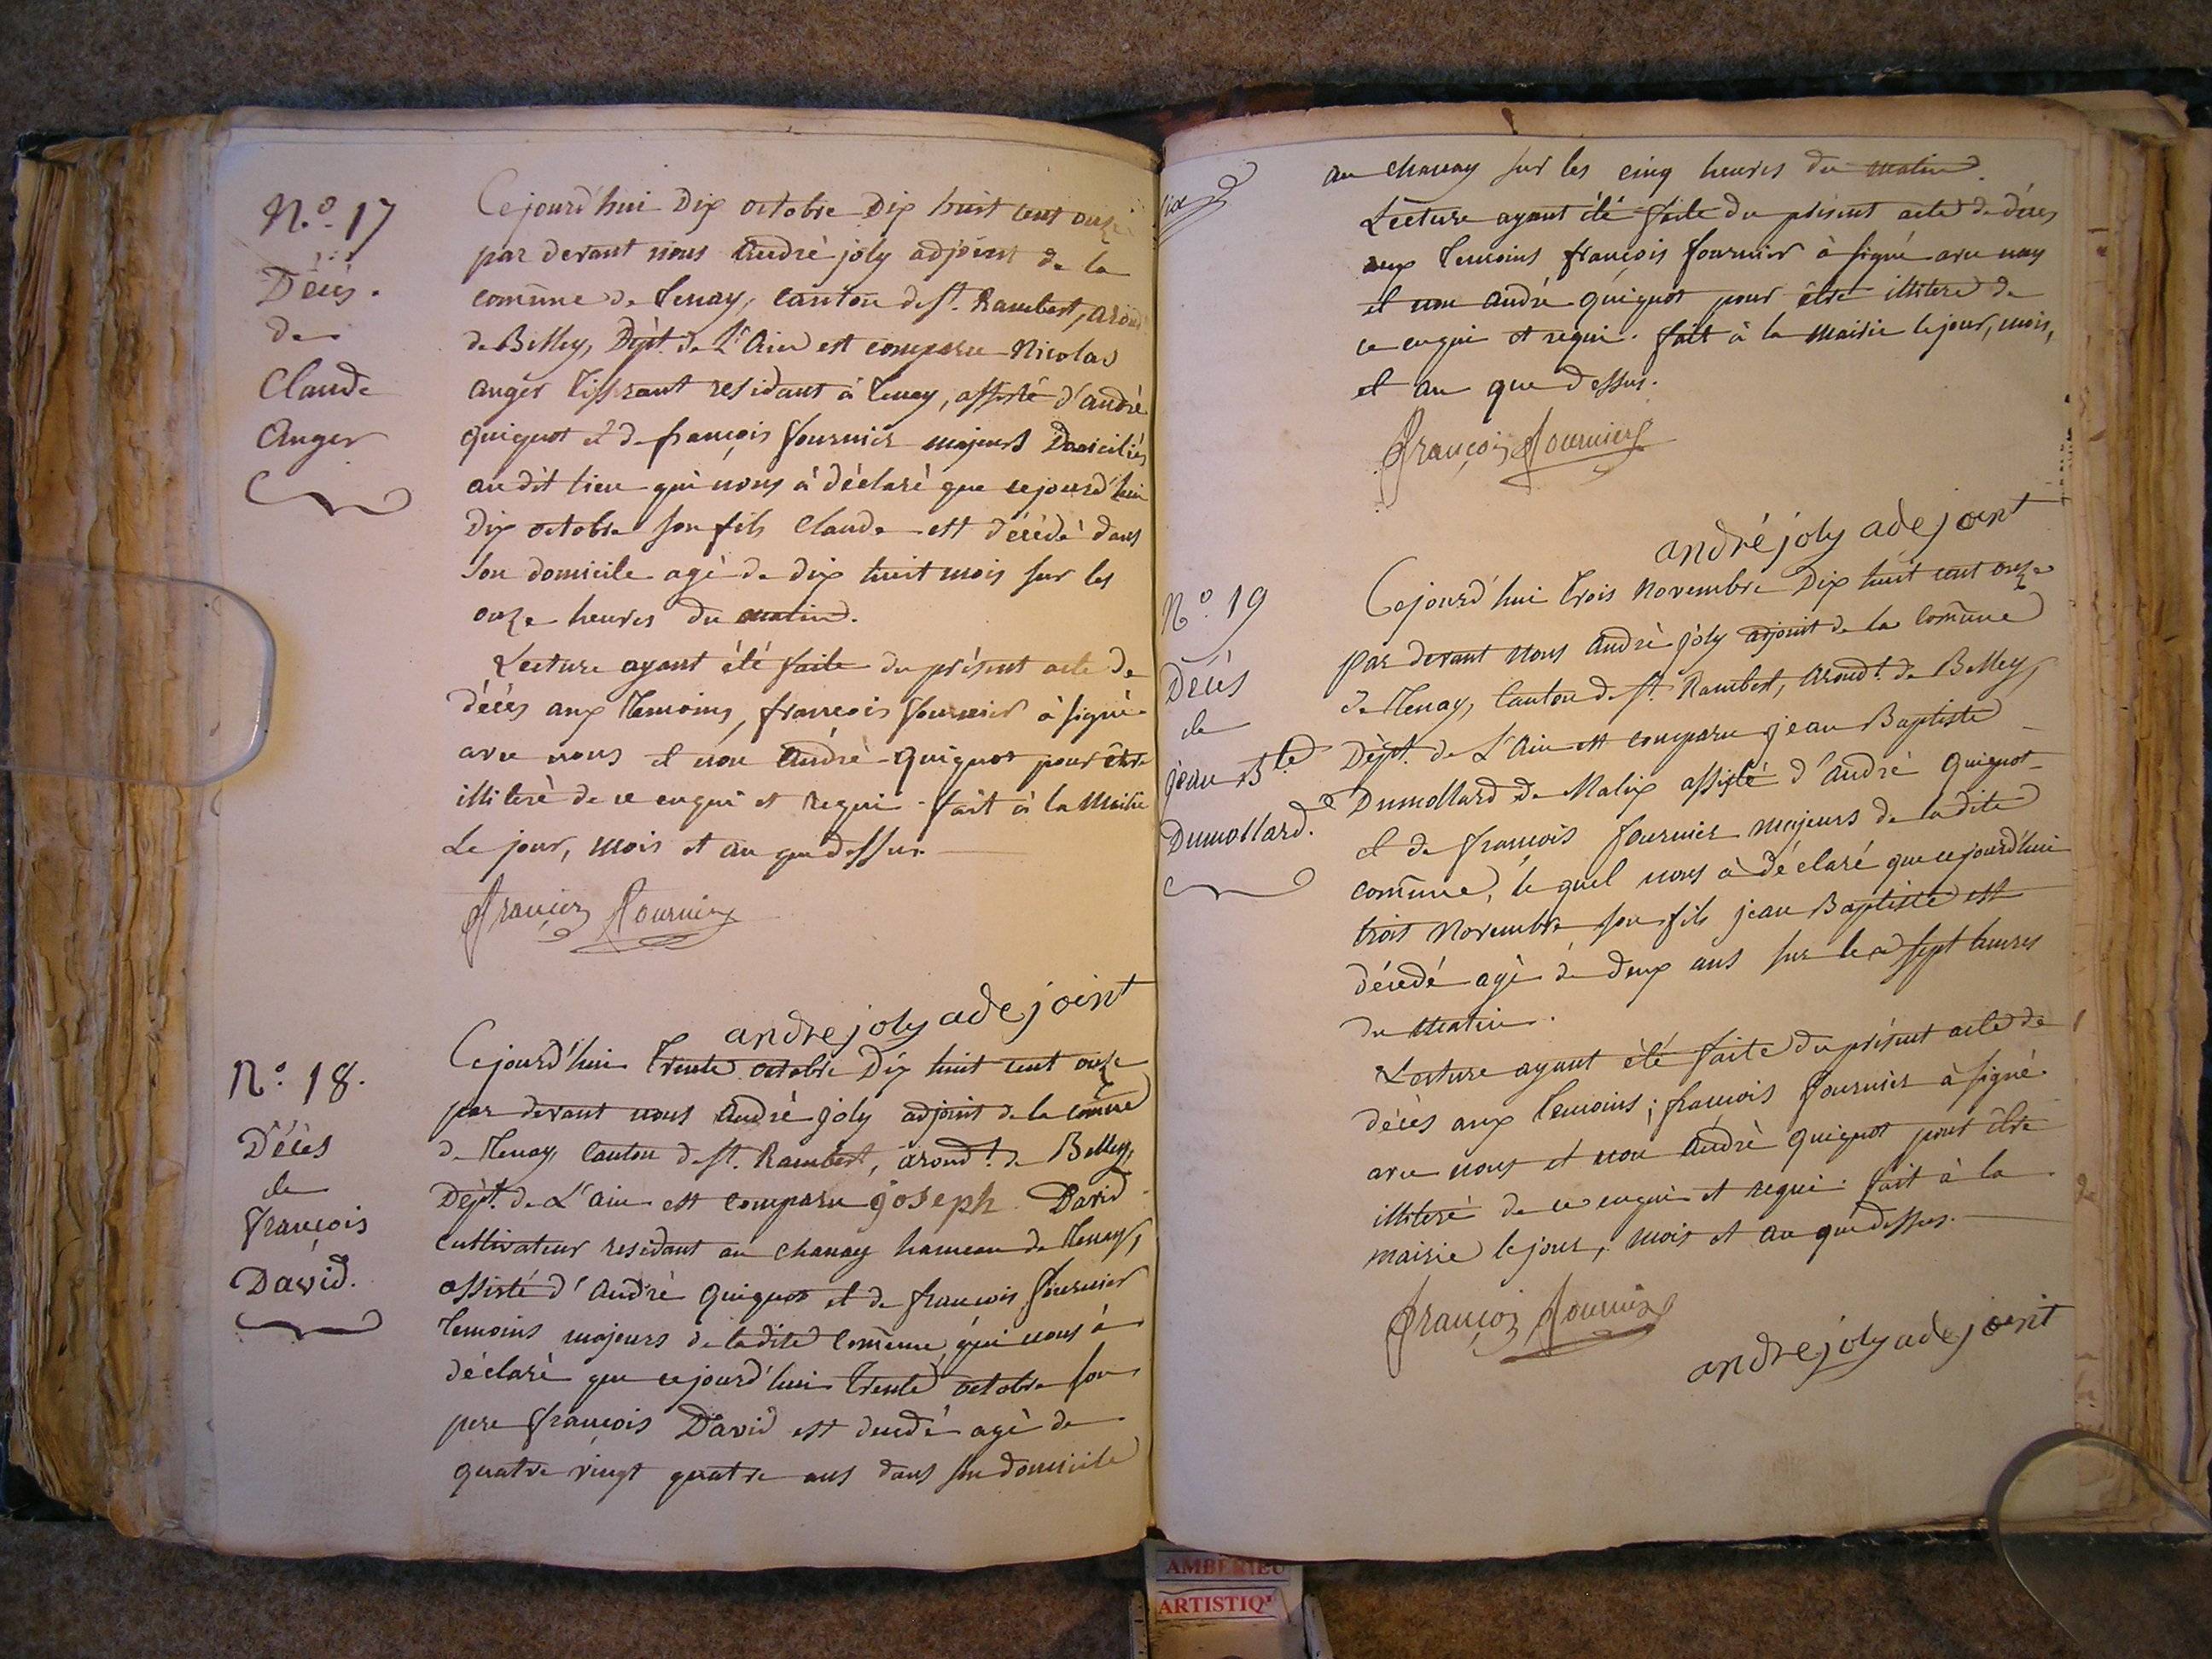 N.º 17
Décès.
de
Claude
Anger
Cejourd'hui Dix octobre Dix huit cent onze
par devant nous André joly adjoint de la
comm̃une de Tenay, canton de St. Rambert, arond
de Belley, Dépt. de L'Ain est comparu Nicolas
anger tissrant residant à Tenay, assisté d'andrè
quignot et de françois fournier majeurs Domiciliés
audit lieu qui nous à déclaré que cejourd'hui
Dix octobre son fils Claude est décédé dans
son domicile agé de dix huit mois sur les
onze heures du matin.
Lecture ayant été faite du présent acte de
décés aux Temoins, francois fournier à signé
avec nous et non André quignot pour être
illiteré de ce enquis et requi. fait à la Mairie
Le jour, mois et an que dessus.
François Fournier
andre joly adejoint
N.º 18.
Décès
de
françois
David.
Cejourd'hui Trente octobre Dix huit cent onze
par devant nous André joly adjoint de la com̃une
de Tenay, Canton de St. Rambert, arond.t de Belley,
Dépt. de L'ain est comparu joseph David
Cultivateur residant au chanay hameau de Tenay,
assisté d'André quignot et de francois fournier
Temoins majeurs de ladite Com̃une, qui nous à
déclaré que cejourd'hui Trente octobre son
pere françois David est decedé agé de
quatre vingt quatre ans dans son domicile
dix
au chanay sur les cinq heures du matin.
Lecture ayant été faite du présent acte de décés
aux Temoins françois fournier à signé avec nous
et non André quignot pour être illiteré de
ce enqui et requi. fait à la Mairie le jour, mois,
et an que dessus.
François Fournier
andré joly adejoint
N.º 19
Décès
de
jean Bte
Dumollard.
Cejourd'hui Trois Novembre Dix huit cent onze
par devant nous Andrè joly adjoint de la Com̃une
de Tenay, Canton de St. Rambert, Arond.t de Belley,
Dépt. de L'Ain est comparu jean Baptiste
Dumollard de Malix assisté d'andrè Quignot
et de françois fournier majeurs de ladite
com̃une, le quel nous à déclaré que cejourd'hui
trois Novembre son fils jean Baptiste est
décedé agé de deux ans sur les sept heures
du Matin.
Lecture ayant été faite du présent acte de
décès aux Temoins; francois fournier à signé
avec nous et non Andrè quignot pour être
illiteré de ce enqui et requi. fait à la
mairie le jour, mois et an que dessus.
François Fournier
andre joly adejoint
AMBERIEU
ARTISTIQ